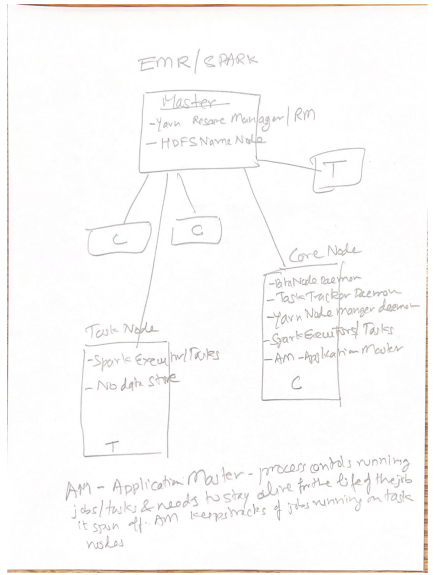 EMR/SPARK
Master
-Yarn Resource Manager/RM
-HDFS Name Node
T
C
C
Core Node
-DataNode Daemon
-Task Tracker Daemon
-Yarn Node manger deamon
-Spark Executors/Tasks
-AM -Application Master
C
Task Node
-Spark Executor/Tasks
-No data store
T
AM - Application Master - process controls running
jobs/tasks & needs to stay alive for the life of the job
it spun off. AM keeps tracks of jobs running on task
nodes